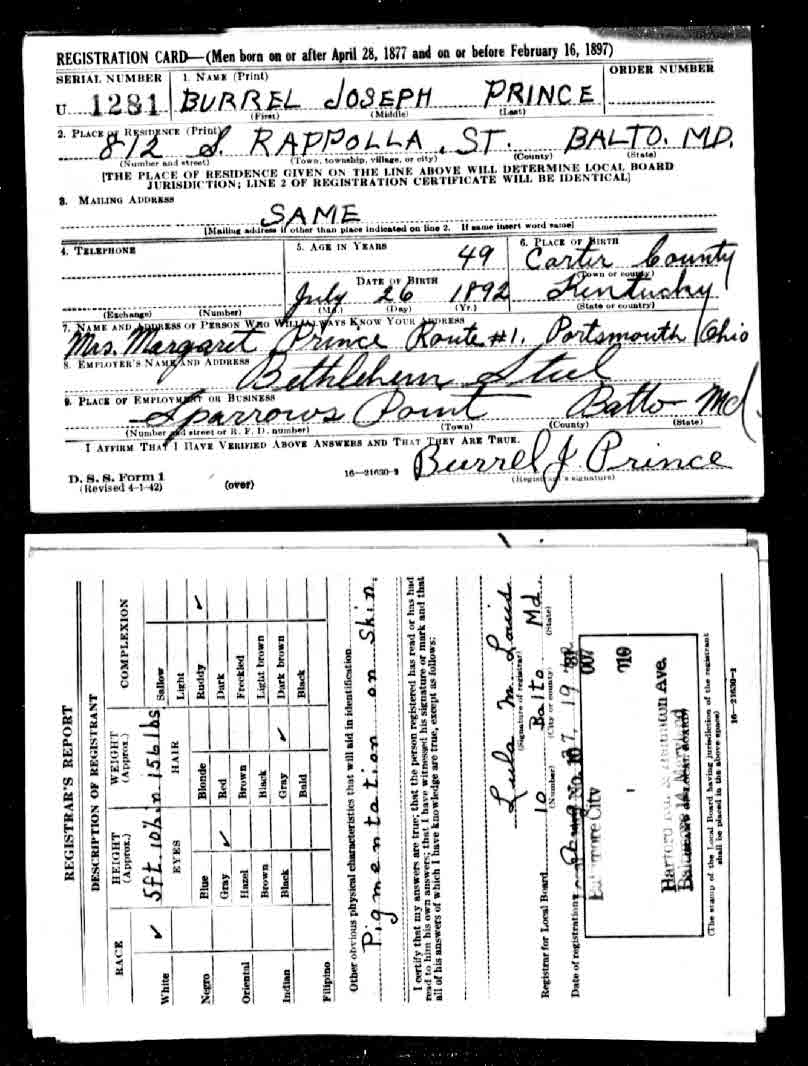 REGISTRATION CARD—(Men born on or after April 28, 1877 and on or before February 16, 1897)
SERIAL NUMBER
1. NAME (Print)
ORDER NUMBER
U 1281
BURREL JOSEPH PRINCE
(First) (Middle) (Last)
2. PLACE OF RESIDENCE (Print)
812 S. RAPPOLLA ST. BALTO. MD.
(Number and street) (Town, township, village, or city) (County) (State)
[THE PLACE OF RESIDENCE GIVEN ON THE LINE ABOVE WILL DETERMINE LOCAL BOARD
JURISDICTION; LINE 2 OF REGISTRATION CERTIFICATE WILL BE IDENTICAL]
3. MAILING ADDRESS
SAME
[Mailing address if other than place indicated on line 2. If same insert word same]
4. TELEPHONE
5. AGE IN YEARS
49
6. PLACE OF BIRTH
Carter County
(Town or county)
DATE OF BIRTH
July 26 1892
Kentucky
(Exchange) (Number)
(Mo.) (Day) (Yr.)
(State or country)
7. NAME AND ADDRESS OF PERSON WHO WILL ALWAYS KNOW YOUR ADDRESS
Mrs. Margaret Prince Route #1. Portsmouth Ohio
8. EMPLOYER'S NAME AND ADDRESS
Bethlehem Steel
9. PLACE OF EMPLOYMENT OR BUSINESS
Sparrows Point Balto Md
(Number and street or R. F. D. number) (Town) (County) (State)
I AFFIRM THAT I HAVE VERIFIED ABOVE ANSWERS AND THAT THEY ARE TRUE.
Burrel J. Prince
D. S. S. Form 1
(Revised 4-1-42)
(over)
16—21630-2
(Registrant's signature)
REGISTRAR'S REPORT
DESCRIPTION OF REGISTRANT
RACE
HEIGHT (Approx.)
WEIGHT (Approx.)
COMPLEXION
White ✓
5 ft. 10½ in
156 lbs.
Sallow
EYES
HAIR
Light
Negro
Blue
Blonde
Ruddy ✓
Gray ✓
Red
Dark
Oriental
Hazel
Brown
Freckled
Brown
Black
Light brown
Indian
Black
Gray ✓
Dark brown
Bald
Black
Filipino
Other obvious physical characteristics that will aid in identification
Pigmentation on Skin.
I certify that my answers are true; that the person registered has read or has had
read to him his own answers; that I have witnessed his signature or mark and that
all of his answers of which I have knowledge are true, except as follows:
Lula M.
(Signature of registrar)
Registrar for Local Board 10 Balto Md.
(Number) (City or county) (State)
Date of registration 27, 1942
Baltimore City
007
Baltimore 14, Maryland
(The stamp of the Local Board having jurisdiction of the registrant
shall be placed in the above space)
16—21630-2